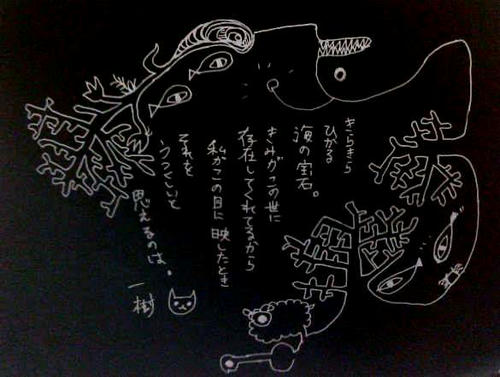 きらきら
ひかる
海の宝石。
きみがこの世に
存在してくれてるから
私がこの目に映したとき
それを
うつくしいと
思えるのは。
一樹